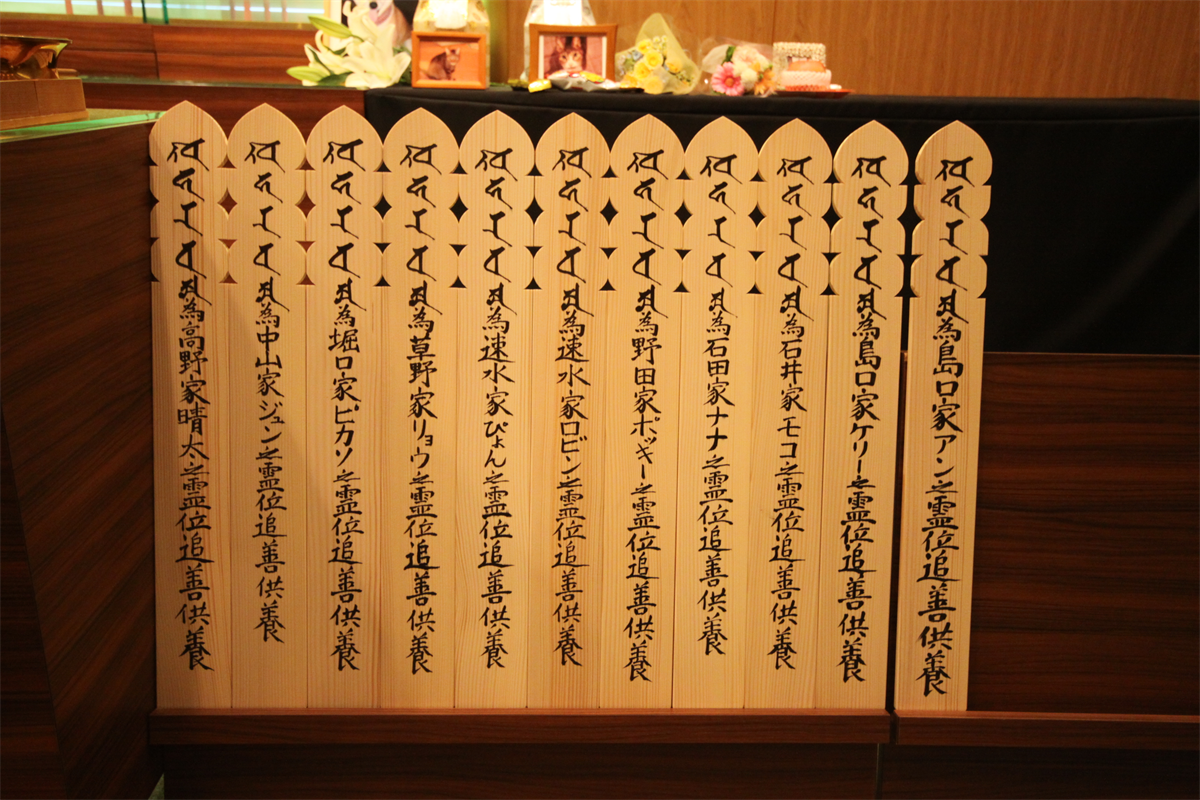 為島口家アン之霊位追善供養
為島口家ケリー之霊位追善供養
為石井家モコ之霊位追善供養
為石田家ナナ之霊位追善供養
為野田家ポッキー之霊位追善供養
為速水家ロビン之霊位追善供養
為速水家ぴょん之霊位追善供養
為草野家リョウ之霊位追善供養
為堀口家ピカソ之霊位追善供養
為中山家ジュン之霊位追善供養
為高野家晴太之霊位追善供養